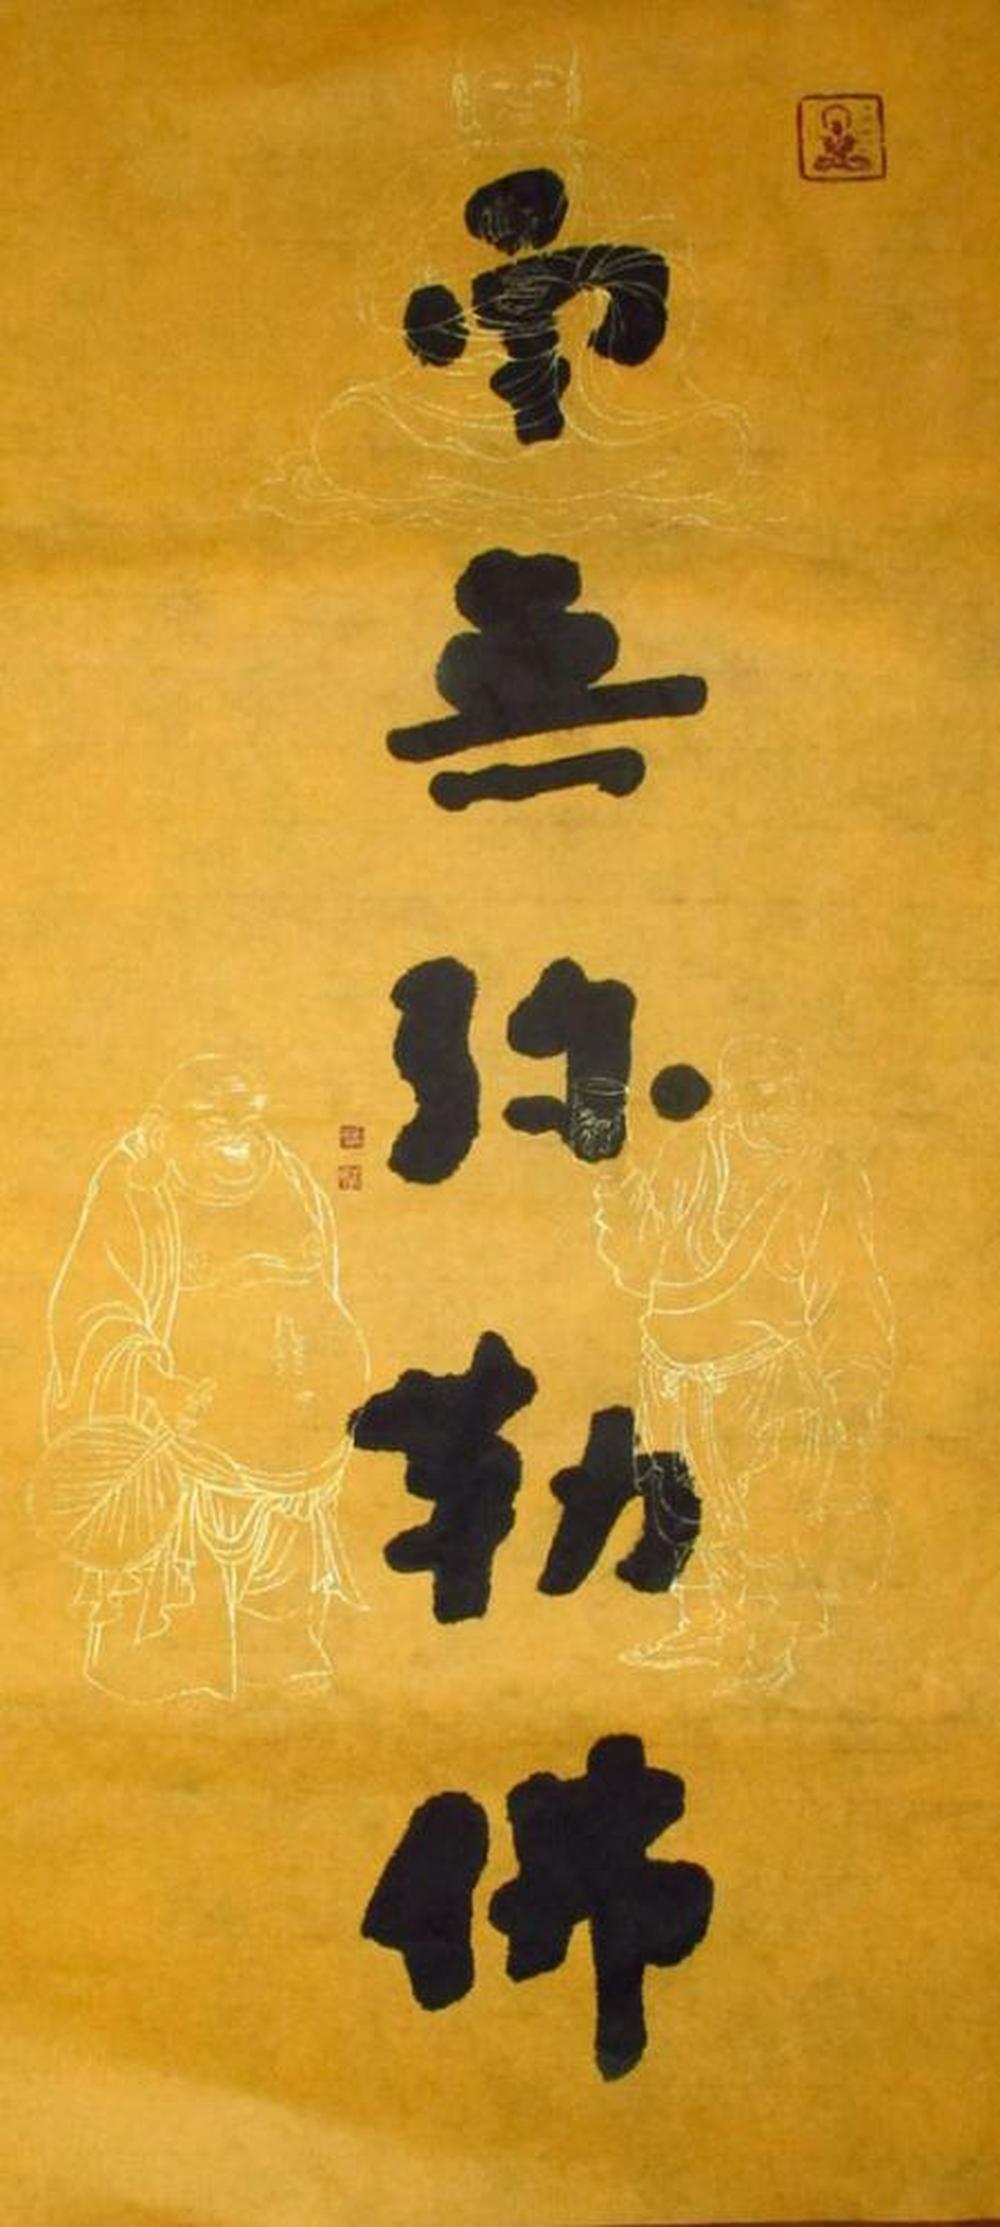 南無弥勒佛